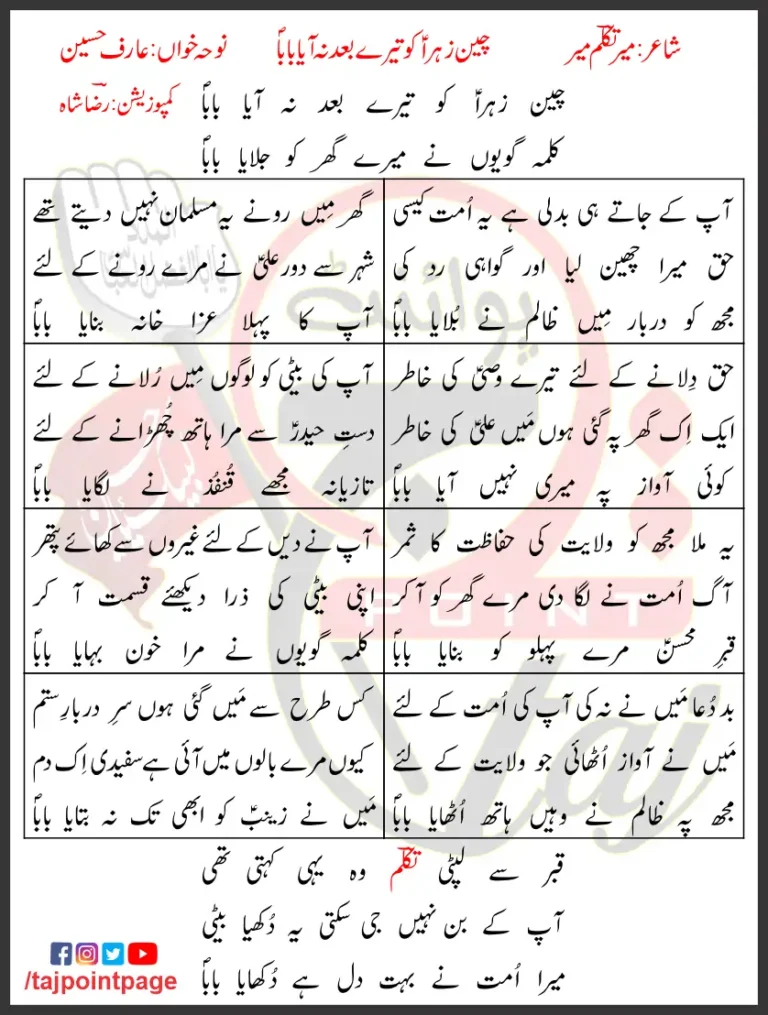 شاعر: میر تکلّم میر چین زہراؑ کو تیرے بعد نہ آیا باباؐ نوحہ خواں: عارف حسین
چین زہراؑ کو تیرے بعد نہ آیا باباؐ
کمپوزیشن: رضا شاہ
کلمہ گویوں نے میرے گھر کو جلایا باباؐ
آپ کے جاتے ہی بدلی ہے یہ اُمت کیسی
حق میرا چھین لیا اور گواہی رد کی
مجھ کو دربار مِیں ظالم نے بُلایا باباؐ
گھر مِیں رونے یہ مسلمان نہیں دیتے تھے
شہر سے دور علیؑ نے مرے رونے کے لئے
آپ کا پہلا عزا خانہ بنایا باباؐ
حق دِلانے کے لئے تیرے وصیؑ کی خاطر
ایک اِک گھر پہ گئی ہوں مَیں علیؑ کی خاطر
کوئی آواز پہ میری نہیں آیا باباؐ
آپ کی بیٹی کو لوگوں مِیں رُلانے کے لئے
دستِ حیدرؑ سے مرا ہاتھ چُھڑانے کے لئے
تازیانہ مجھے قُنفُذ نے لگایا باباؐ
یہ ملا مجھ کو ولایت کی حفاظت کا ثمر
آگ اُمت نے لگا دی مرے گھر کو آ کر
قبرِ محسنؑ مرے پہلو کو بنایا باباؐ
آپ نے دیں کے لئے غیروں سے کھائے پتھر
اپنی بیٹی کی ذرا دیکھئے قسمت آ کر
کلمہ گویوں نے مرا خون بہایا باباؐ
بد دُعا مَیں نے نہ کی آپ کی اُمت کے لئے
مَیں نے آواز اُٹھائی جو ولایت کے لئے
مجھ پہ ظالم نے وہیں ہاتھ اُٹھایا باباؐ
کس طرح سے مَیں گئی ہوں سرِ دربارِ ستم
کیوں مرے بالوں میں آئی ہے سفیدی اِک دم
مَیں نے زینبؑ کو ابھی تک نہ بتایا باباؐ
قبر سے لپٹی تکلّم وہ یہی کہتی تھی
آپ کے بن نہیں جی سکتی یہ دُکھیا بیٹی
میرا اُمت نے بہت دل ہے دُکھایا باباؐ
/tajpointpage
پوائنٹ
POINT
Taj